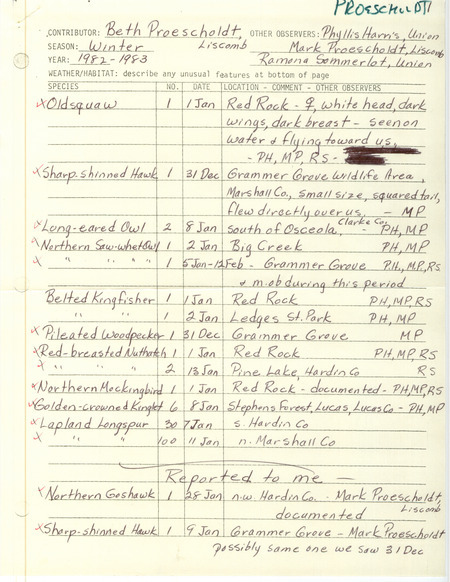 PROESCHOLDT
CONTRIBUTOR: Beth Proescholdt, Liscomb OTHER OBSERVERS: Phyllis Harris, Union
SEASON: Winter Mark Proescholdt, Liscomb
YEAR: 1982-1983 Ramona Sommerlot, Union
WEATHER/HABITAT: describe any unusual features at bottom of page
SPECIES NO. DATE LOCATION - COMMENT - OTHER OBSERVERS
x Oldsquaw 1 1 Jan Red Rock - ♀, white head, dark
wings, dark breast - seen on
water & flying toward us,
- PH, MP, RS -
x Sharp-shinned Hawk 1 31 Dec Grammer Grove Wildlife Area,
Marshall Co., small size, squared tail,
flew directly over us, - MP
x Long-eared Owl 2 8 Jan south of Osceola, Clarke Co. - PH, MP
x Northern Saw-whet Owl 1 2 Jan Big Creek PH, MP
x " " " " 1 5 Jan-12 Feb - Grammer Grove PH, MP, RS
& mob during this period
Belted Kingfisher 1 1 Jan Red Rock PH, MP, RS
" " 1 2 Jan Ledges St. Park PH, MP
x Pileated Woodpecker 1 31 Dec Grammer Grove MP
x Red-breasted Nuthatch 1 1 Jan Red Rock PH, MP, RS
x " " 2 13 Jan Pine Lake, Hardin Co RS
x Northern Mockingbird 1 1 Jan Red Rock - documented - PH, MP, RS
x Golden-crowned Kinglet 6 8 Jan Stephens Forest, Lucas, Lucas Co - PH, MP
x Lapland Longspur 30 7 Jan s. Hardin Co
x " " 100 11 Jan n. Marshall Co
Reported to me —
x Northern Goshawk 1 28 Jan n.w. Hardin Co. - Mark Proescholdt, Liscomb
documented
x Sharp-shinned Hawk 1 9 Jan Grammer Grove - Mark Proescholdt
possibly same one we saw 31 Dec